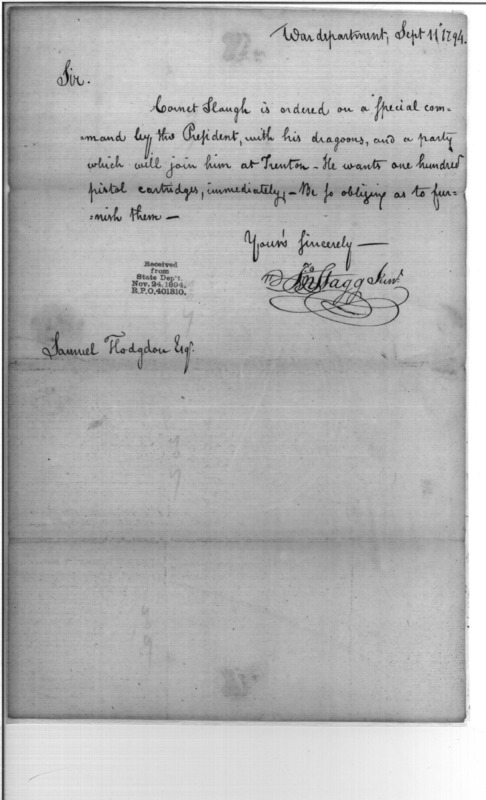 War department, Sept 11th 1794.
Sir.
Cornet Slough is ordered on a special com=
=mand by the President, with his dragoons, and a party
which will join him at Trenton - He wants one hundred
pistol cartridges, immediately, - Be so obliging as to fur=
=nish them -
Yours sincerely -
Jno Stagg Junr
Received
from
State Dep't.
Nov. 24, 1894.
R.P.O. 401310.
Samuel Hodgdon Esqr.